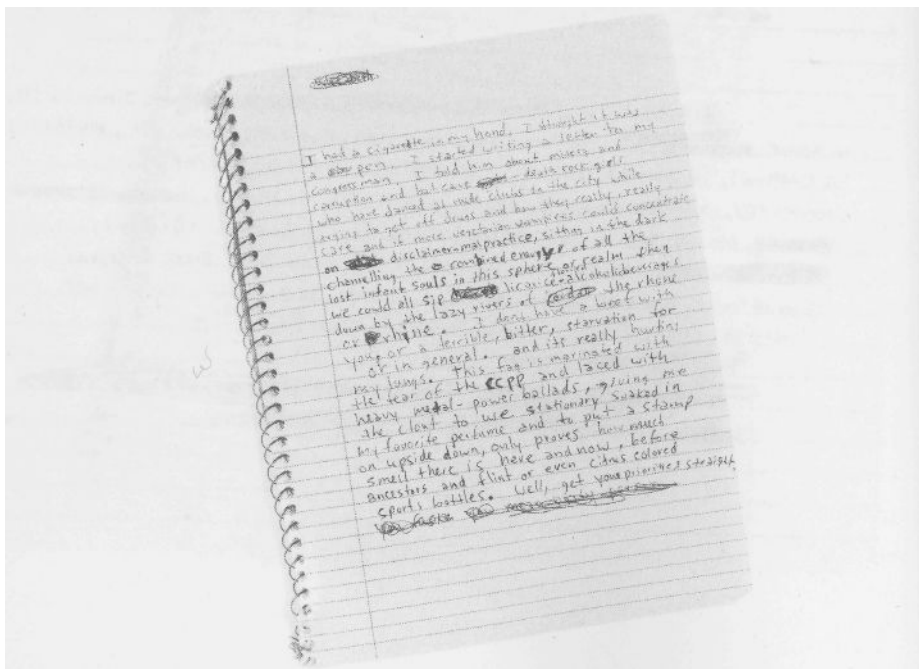 I had a cigarette in my hand, I thought it was
a pen. I started writing a letter to my
congressman. I told him about misery and
corruption and bat cave - death rock girls
who have danced at nude clubs in the city while
trying to get off drugs and how they really, really
care and if more vegetarian vampires could concentrate
on disclaimer-malpractice, sitting in the dark
channelling the combined energy of all the
lost infant souls in this sphere or realm then
we could all sip licorice-alcoholic beverages
down by the lazy rivers of the rhone
or rhine. I dont have a beef with
you, or a terrible, bitter, starvation for
or in general. and its really hurting
my lungs. This fag is marinated with
the tear of the CCPP and laced with
heavy metal-power ballads, giving me
the clout to use stationary soaked in
my favorite perfume and to put a stamp
on upside down, only proves how much
smell there is here and now, before
ancestors and flint or even citrus colored
sports bottles. Well, get your priorities straight.